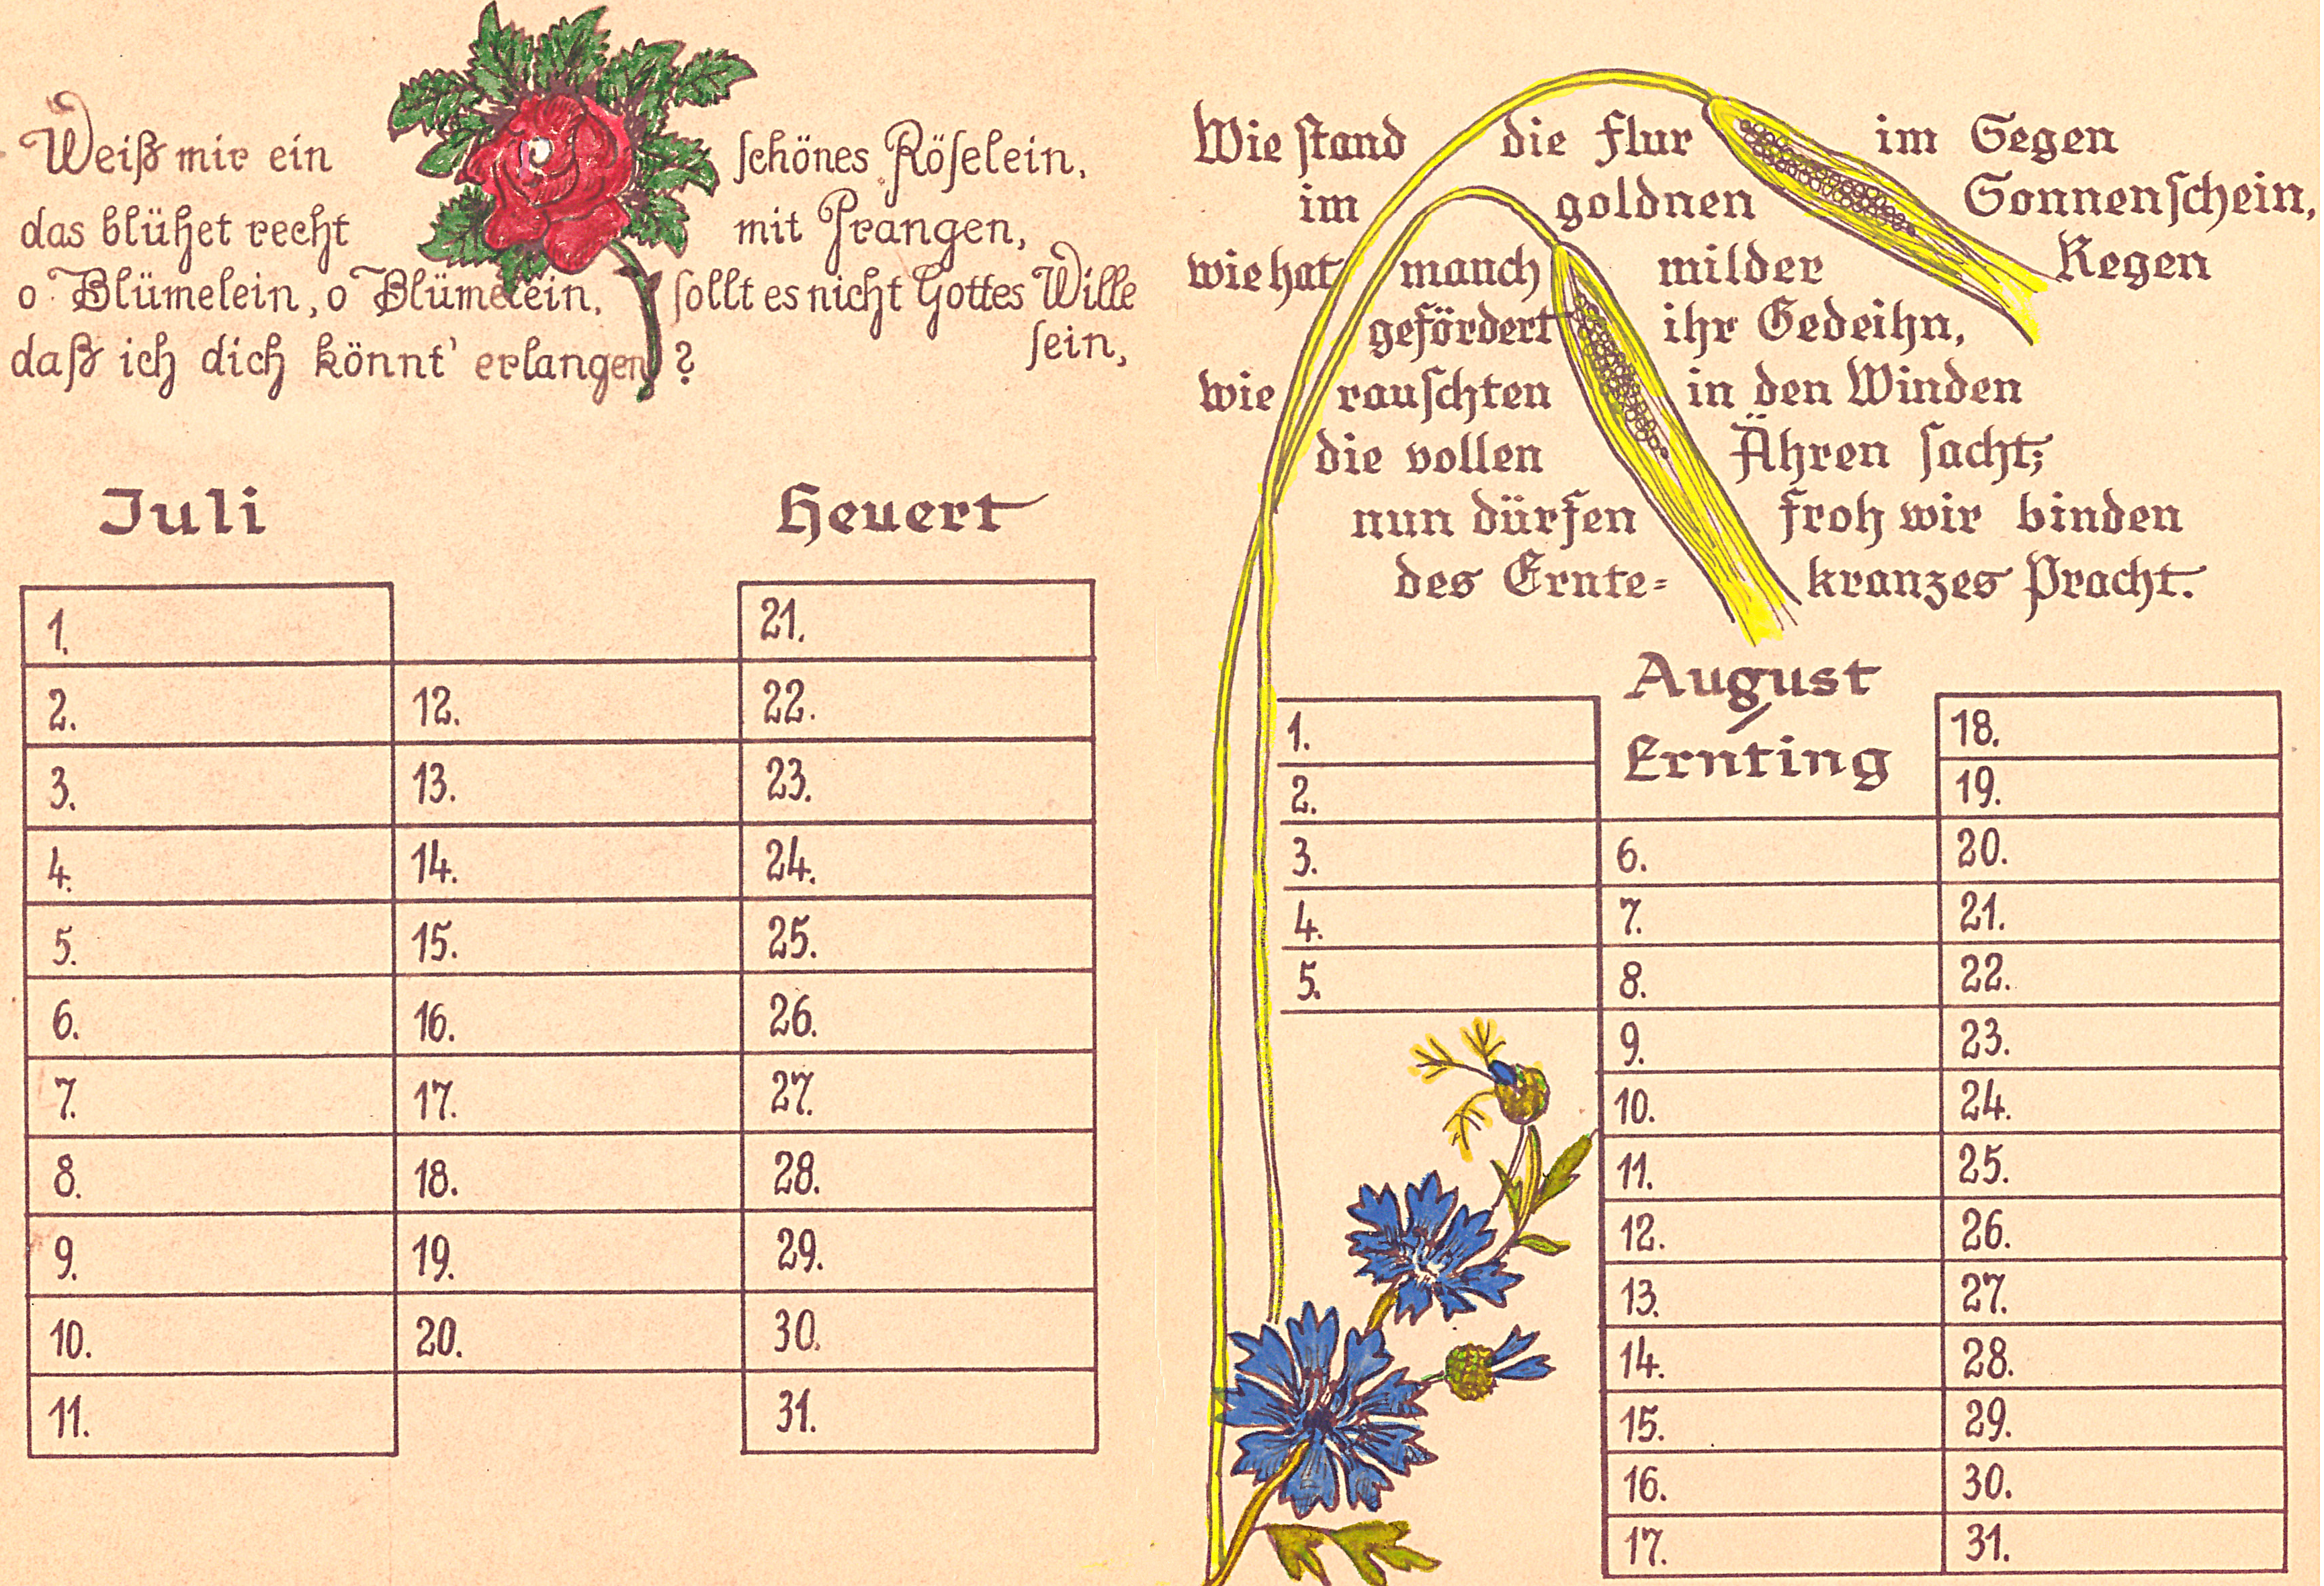 Weiß mir ein schönes Röselein,
das blühet recht mit Prangen,
o Blümelein, o Blümelein, sollt es nicht Gottes Wille
sein,
daß ich dich könnt' erlangen?
Juli Heuert
1.
2.
3.
4.
5.
6.
7.
8.
9.
10.
11.
12.
13.
14.
15.
16.
17.
18.
19.
20.
21.
22.
23.
24.
25.
26.
27.
28.
29.
30.
31.
Wie stand die Flur im Segen
im goldnen Sonnenschein,
wie hat manch milder Regen
gefördert ihr Gedeihn,
wie rauschten in den Winden
die vollen Ähren sacht;
nun dürfen froh wir binden
des Ernte=kranzes Pracht.
August
Ernting
1.
2.
3.
4.
5.
6.
7.
8.
9.
10.
11.
12.
13.
14.
15.
16.
17.
18.
19.
20.
21.
22.
23.
24.
25.
26.
27.
28.
29.
30.
31.